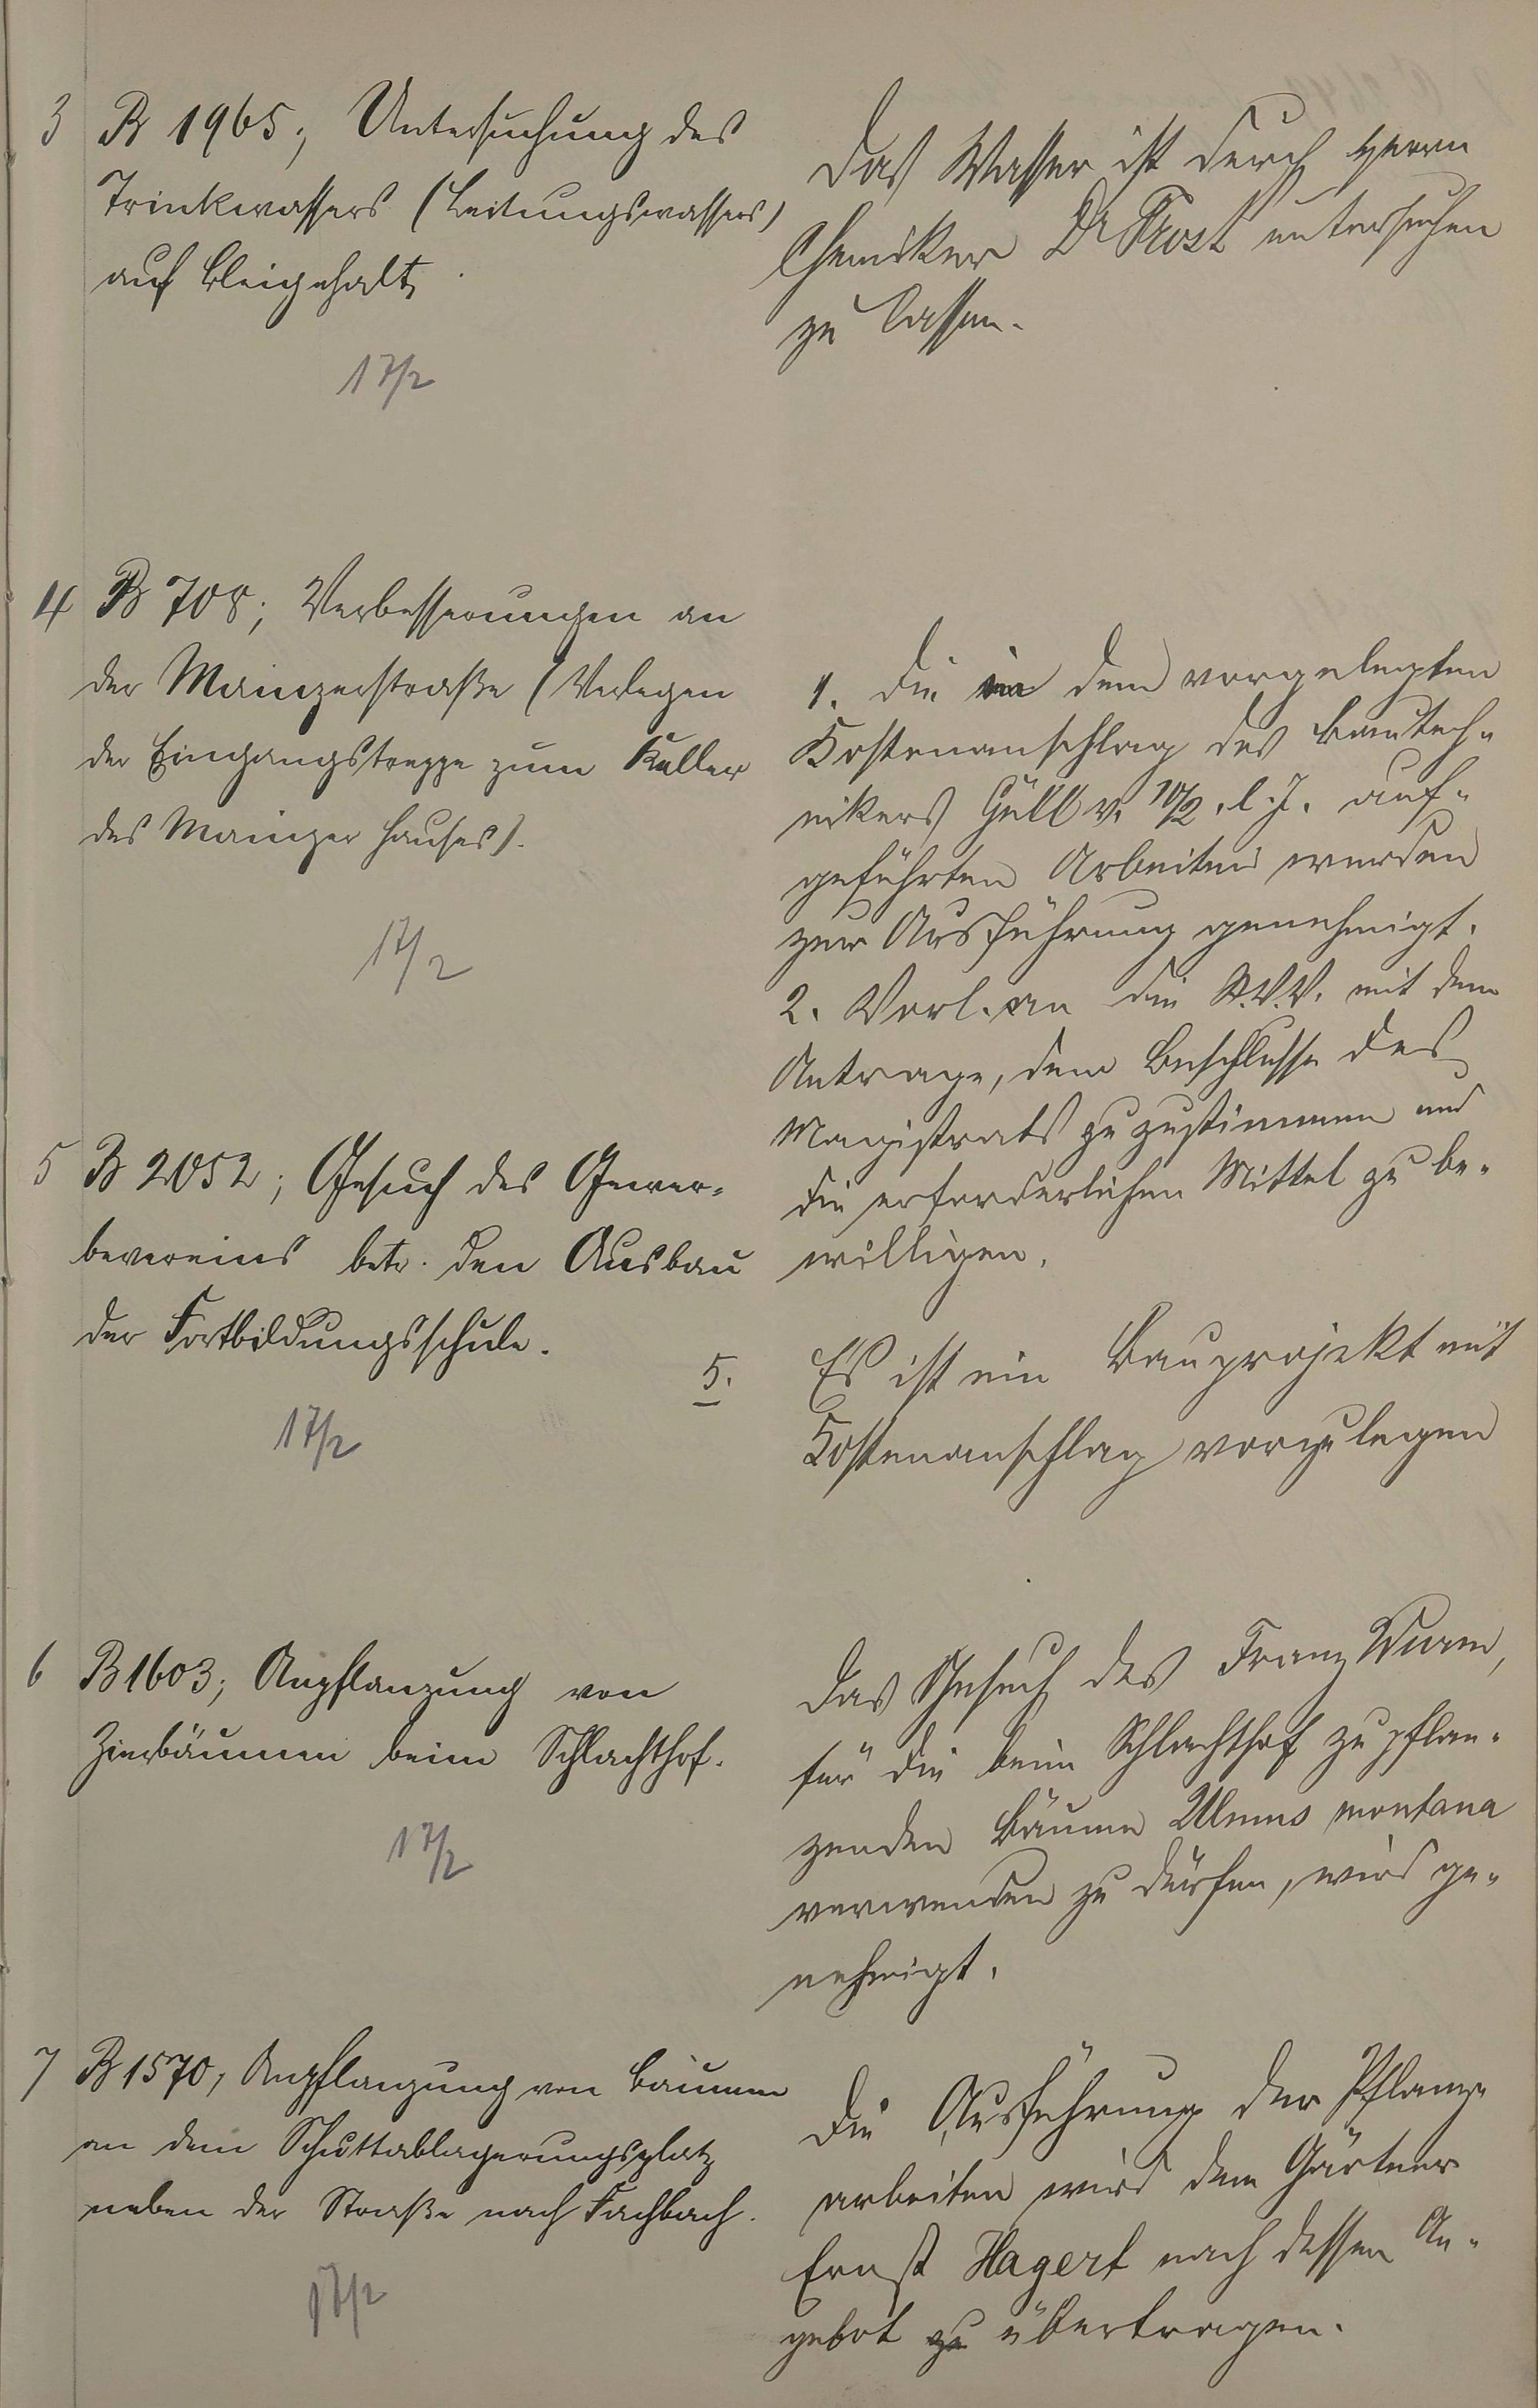 3 B 1965; Untersuchung des
Trinkwassers (Leitungswassers)
auf Bleigehalt.
17/2
Das Wasser ist durch Herrn
Chemiker Dr Frost untersuchen
zu lassen.
4 B 708; Verbesserungen an
der Mainzerstraße (Verlegen
der Eingangstreppe zum Keller
des Mainzer Hauses).
17/2
1. Die in dem vorgelegten
Kostenanschlag des Bautech-
nikers Güll v. 10/2. l. J. auf-
geführten Arbeiten werden
zur Ausführung genehmigt.
2. Vorl. an die St.V.V. mit dem
Antrage, dem Beschlusse des
Magistrats zuzustimmen und
die erforderlichen Mittel zu be-
willigen.
5 B 2052; Gesuch des Gewer-
bevereins betr. den Ausbau
der Fortbildungsschule.
17/2
5. Es ist ein Bauprojekt mit
Kostenanschlag vorzulegen
6 B 1603; Anpflanzung von
Zierbäumen beim Schlachthof.
17/2
Das Gesuch des Franz Wurm,
für die beim Schlachthof zu pflan-
zenden Bäume Ulmus montana
verwenden zu dürfen, wird ge-
nehmigt.
7 B 1570, Anpflanzung von Bäumen
an dem Schuttablagerungsplatz
neben der Straße nach Fachbach.
17/2
Die Ausführung der Pflanz
arbeiten wird dem Gärtner
Ernst Hagert nach dessen An-
gebot zu übertragen.